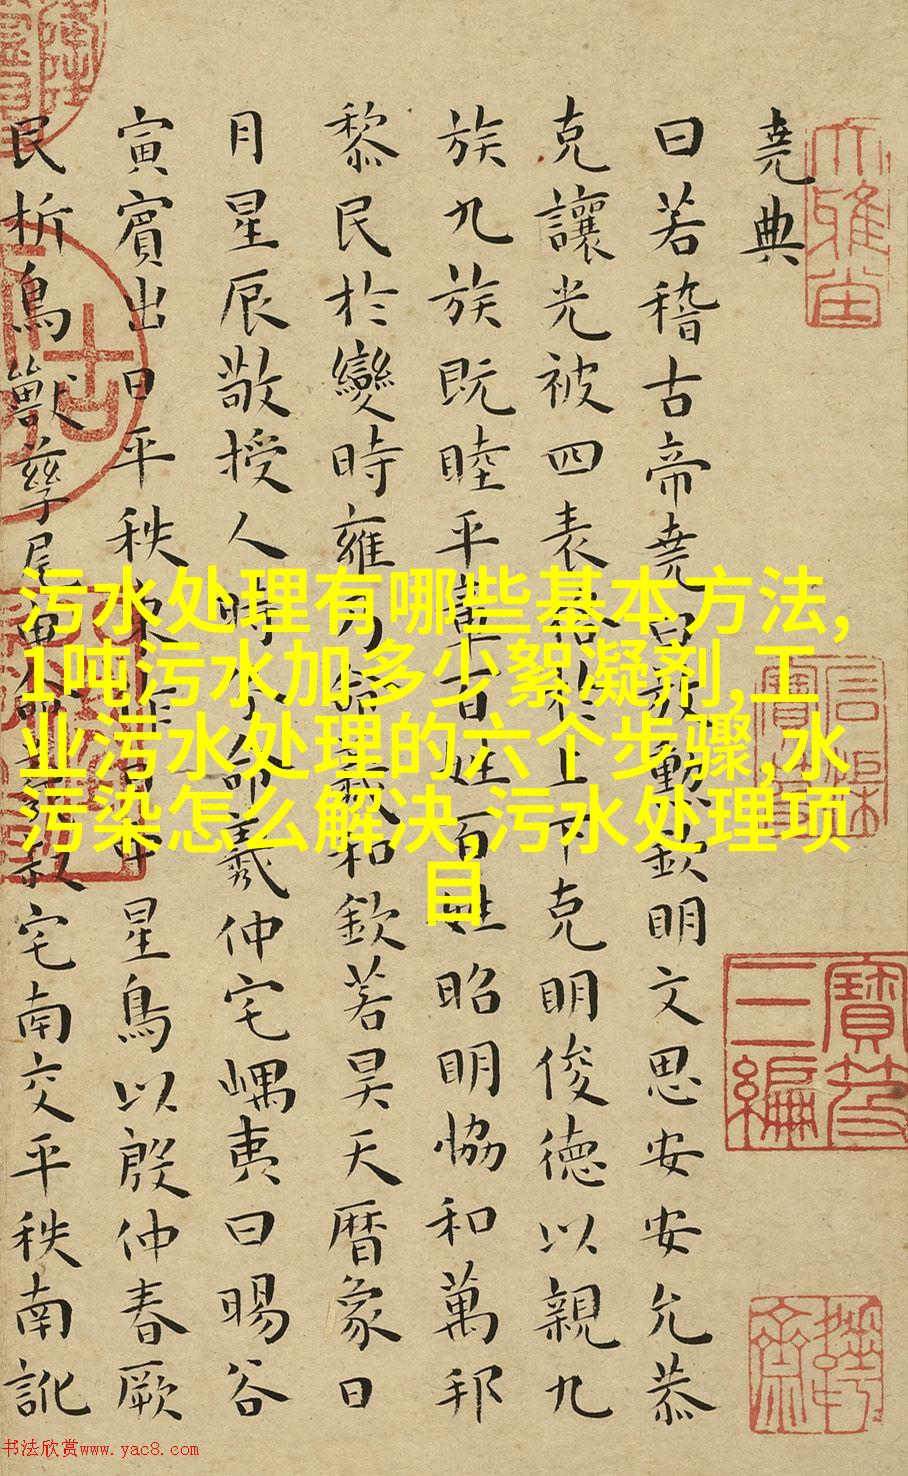 堯典
曰若稽古帝堯曰放勳欽明文思安安允恭
克讓光被四表格於上下克明俊德以親九
族九族既睦平章百姓百姓昭明恊和萬邦
黎民於變時雍乃命羲和欽若昊天曆象日
月星辰敬授人時分命羲仲宅嵎夷曰暘谷
寅賓出日平秩東作日中星鳥以殷仲春厥
民析鳥獸孳尾申命羲叔宅南交平秩南訛
污水处理有哪些基本方法,
1吨污水加多少絮凝剂,工
业污水处理的六个步骤,水
污染怎么解决,污水处理项
目
寶笈
三編
书法欣赏www.yac8.com